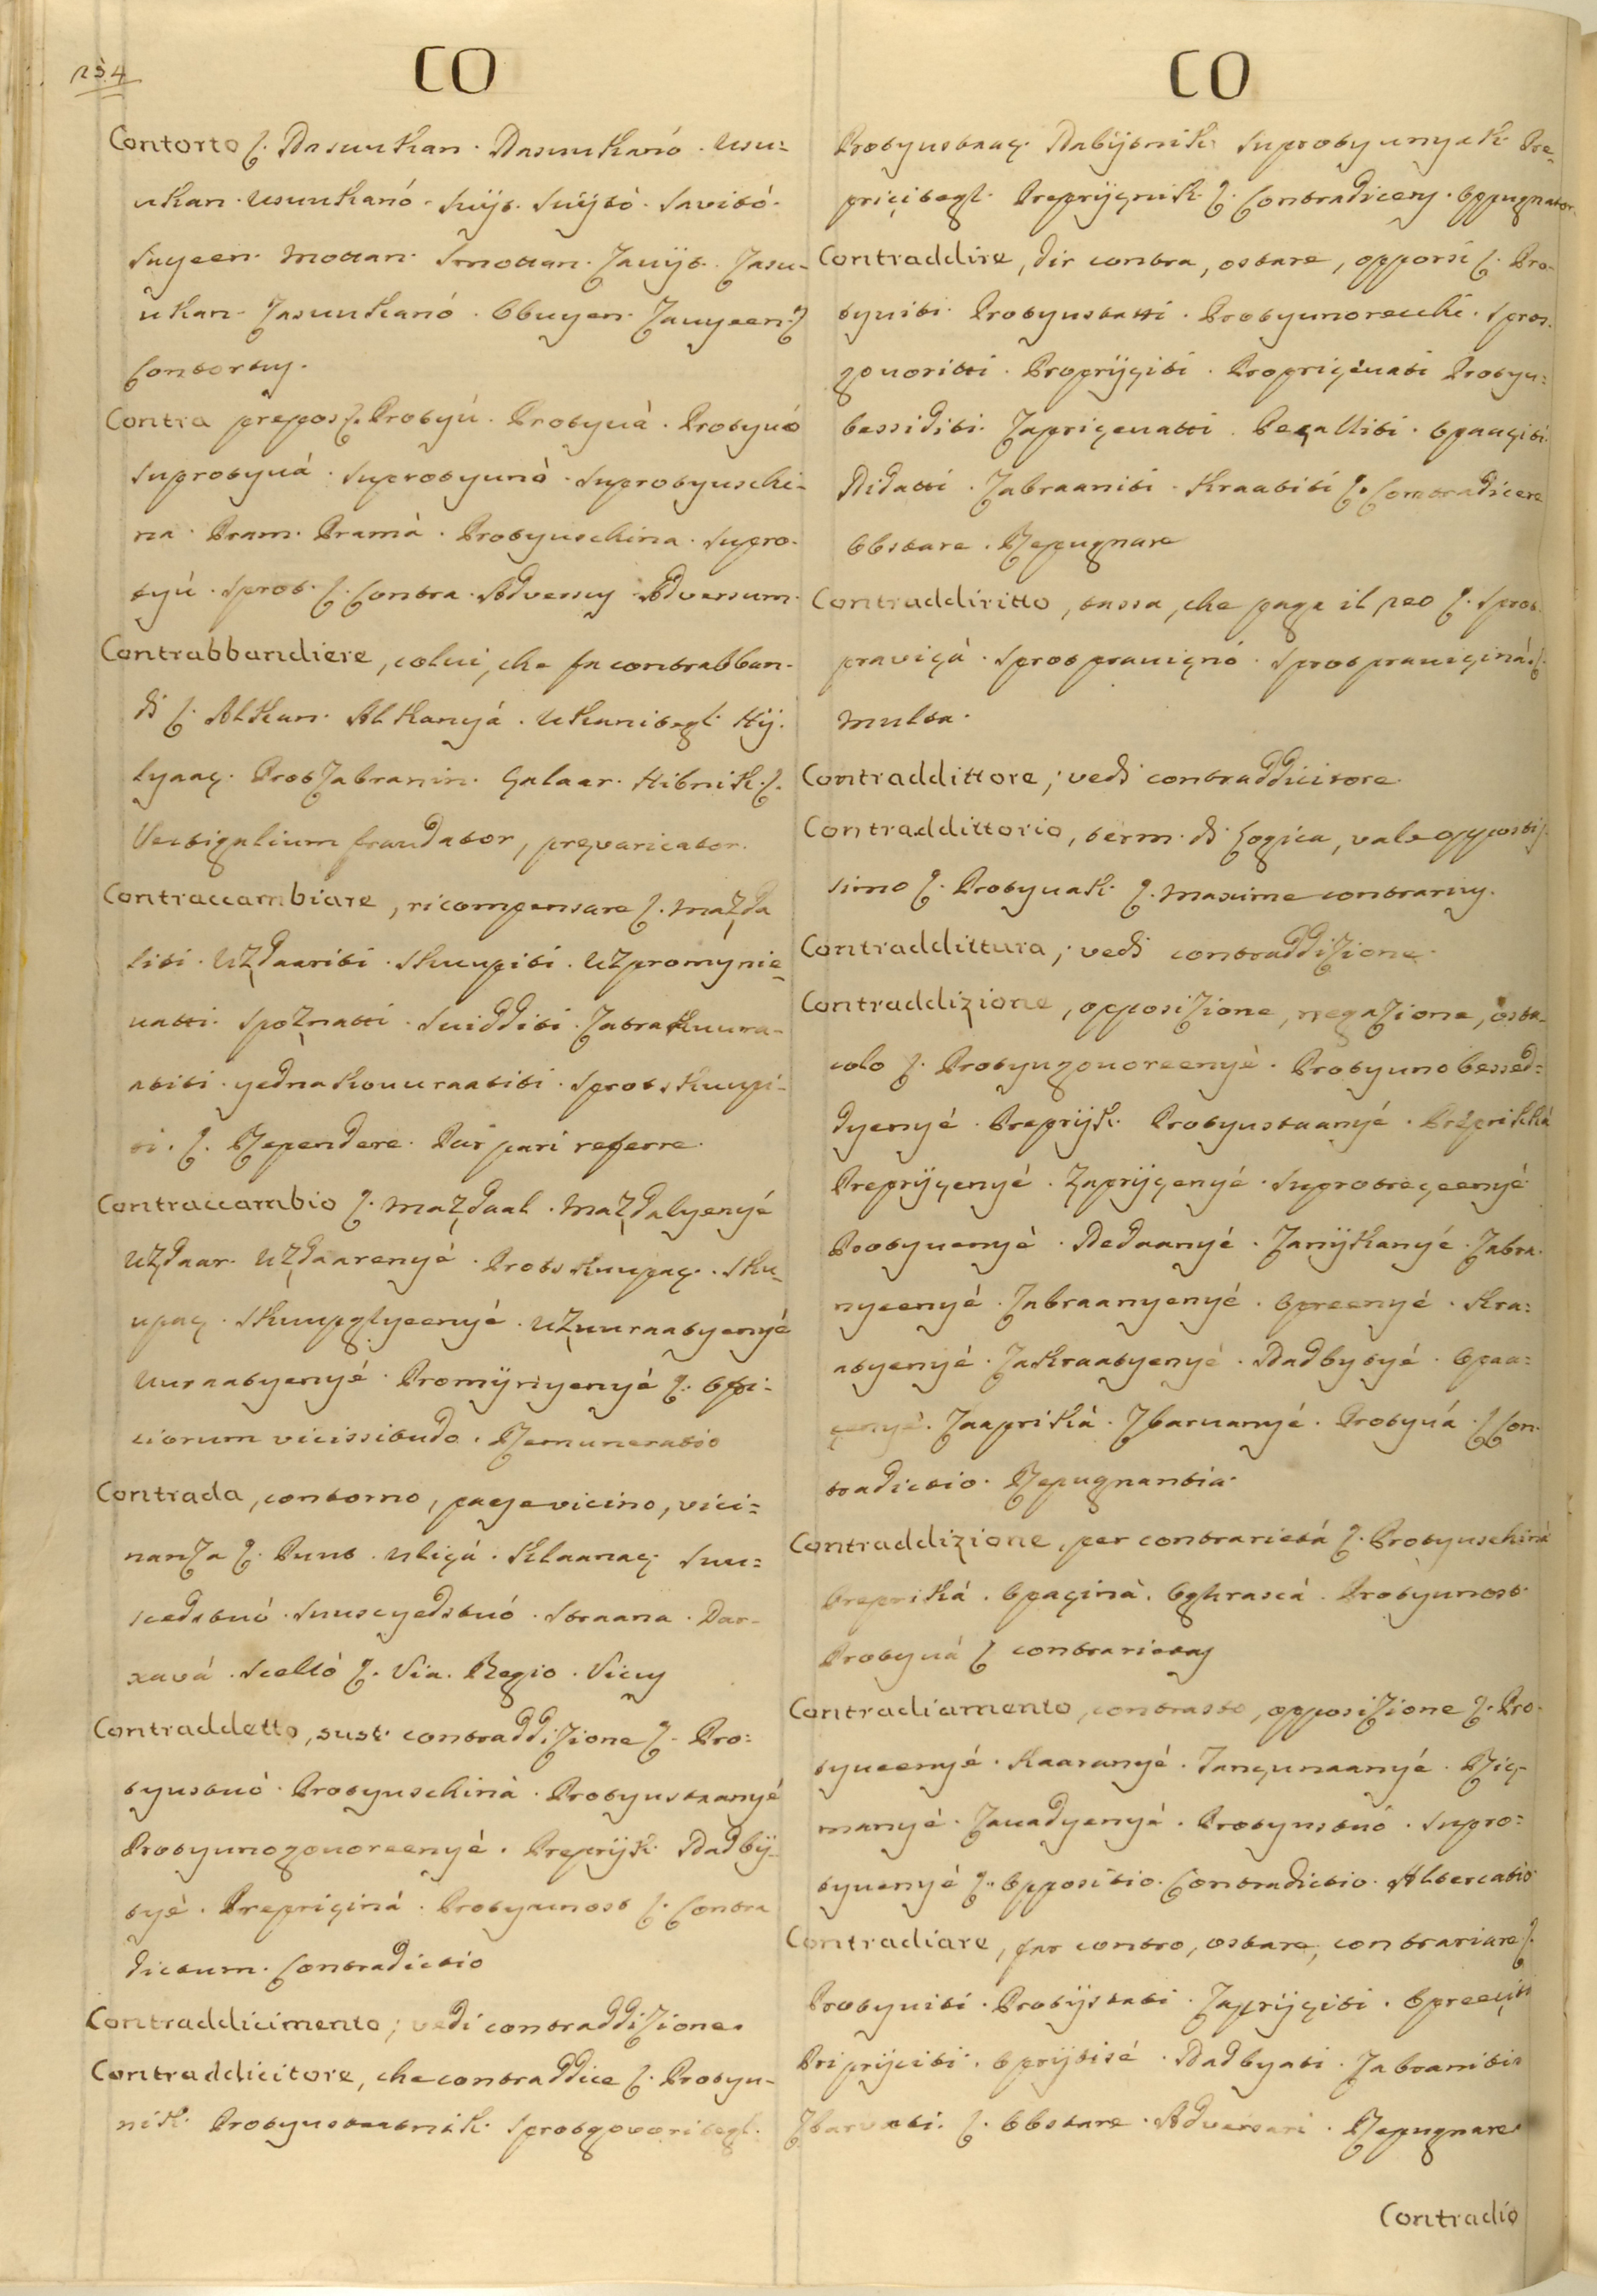 254
CO
Contorto ſ. Dasuukan. Dasuukanó. Usu=
ukan. Usuukanó. Suÿt. Suÿtó. Savitó.
Suyeen. Mottan. Smottan. Zauÿt. Zasu=
ukan. Zasuukanó. Obuyen. Zauyeen. ſ.
Contortuſ.
Contra prepos ſ. Protyú. Protyuà. Protyuó
Suprotyuá. Suprotyunò. Suprotyuschi=
na. Pram. Pramà. Protyuschina. Supro=
tyú. Sprot. ſ. Contra. Adversuſ. Adversum.
Contrabbandiere, colui, che fa contrabban=
di ſ. Alkan. Alkanyá. Ukanitegl. Hÿ=
lyaaç. Protzabranin. Galaar. Hibnik. ſ.
Vectigalium fraudator, prevaricator.
Contraccambiare, ricompensare ſ. Mazda
liti. Uzdaariti. Skuupiti. Uzpromynie=
uatti. Spoznatti. Suidditi. Zatrakuura=
atiti. yednakouuraatiti. Sprotskuupi=
ti. ſ. Rependere. Par pari referre.
Contraccambio ſ. Mazdaal. Mazdalyenyé
Uzdaar. Uzdaarenyé. Protskuupaç. Sku=
upaç. Skuupglyeenyé. Uzuuraatyenyé
Uuraatyenyé. Promÿnyenyé ſ. Offi=
ciorum vicissitudo. Remuneratio
Contrada, contorno, paese vicino, vici=
nanza ſ. Punt. Uliçá. Klaanaç. Suu=
scedstuó. Suuscyedstuó. Straana. Dar=
xavá. Scelló ſ. Via. Regio. Vicuſ
Contraddetto, sust. contraddizione ſ. Pro=
tyustuò. Protyuschinà. Protyustaanyé
Protyunogouoreenyé. Preprÿk. Dadbÿ=
tyè. Prepriçiná. Protyunost ſ. Contra
dictum. Contradictio
Contraddicimento; vedi contraddizione.
Contraddicitore, che contraddice ſ. Protyu=
nik. Protyustaatnik. Sprotgovoritegl.
CO
Protyustaaç. Dabÿtnik. Suprotyunyak. Pre=
priçitegl. Preprÿçnik. ſ. Contradicenſ. Oppugnator.
Contraddire, dir contra, ostare, opporsi ſ. Pro=
tyuiti. Protyustatti. Protyunorecchi. Sprot=
gouoritti. Proprÿçiti. Propriçeuati Protyu=
bessiditi. Zapriçeuatti. Peçalliti. Opaaçiti.
Didatti. Zabraaniti. Kraatiti ſ. Contradicere
Obstare. Repugnare
Contraddiritto, tassa, che paga il reo ſ. Sprot=
praviçà. Sprotprauiçnó. Sprotprauiçiná. ſ.
Multa.
Contraddittore; vedi contraddicitore.
Contraddittorio, term. di Logica, vale oppostiſ=
simo ſ. Protyuak. ſ. Maxime contrariuſ.
Contraddittura; vedi contraddizione.
Contraddizione, opposizione, negazione, osta=
colo ſ. Protyugouoreenyè. Protyunobessed=
dyenyé. Preprÿk. Protyustaanyé. Prépriská
Preprÿçenyé. Zaprÿçenyé. Suprotreçeenyé
Protyuenyè. Dedaanyé. Zanÿkanyé. Zabra=
nyeenyé. Zabraanyenyé. Opreenyé. Kra=
atyenyé. Zakraatyenyé. Dadbytyé. Opaa=
çenyé. Zaapriká. Zbaruanyé. Protyuá. ſ. Con=
tradictio. Repugnantia.
Contraddizione, per contrarietá ſ. Protyuschiná
Prepriká. Opaçinà. Oghrascá. Protyunost.
Protyuá ſ contrarietaſ
Contradiamento, contrasto, opposizione ſ. Pro=
tyueenyé. Kaaranyé. Tançunaanyé. Riç=
manyé. Zauadyenyá. Protyustuó. Supro=
tyuenyé ſ. Oppositio. Contradictio. Altercatio
Contradiare, far contro, ostare, contrariare ſ.
Protyuiti. Protÿstati. Zaprÿçiti. Opreeçiti
Priprÿciti. Oprÿtisé. Dadbyati. Zabraniti
Zbarvati. ſ. Obstare. Adversari. Repugnare
Contradio